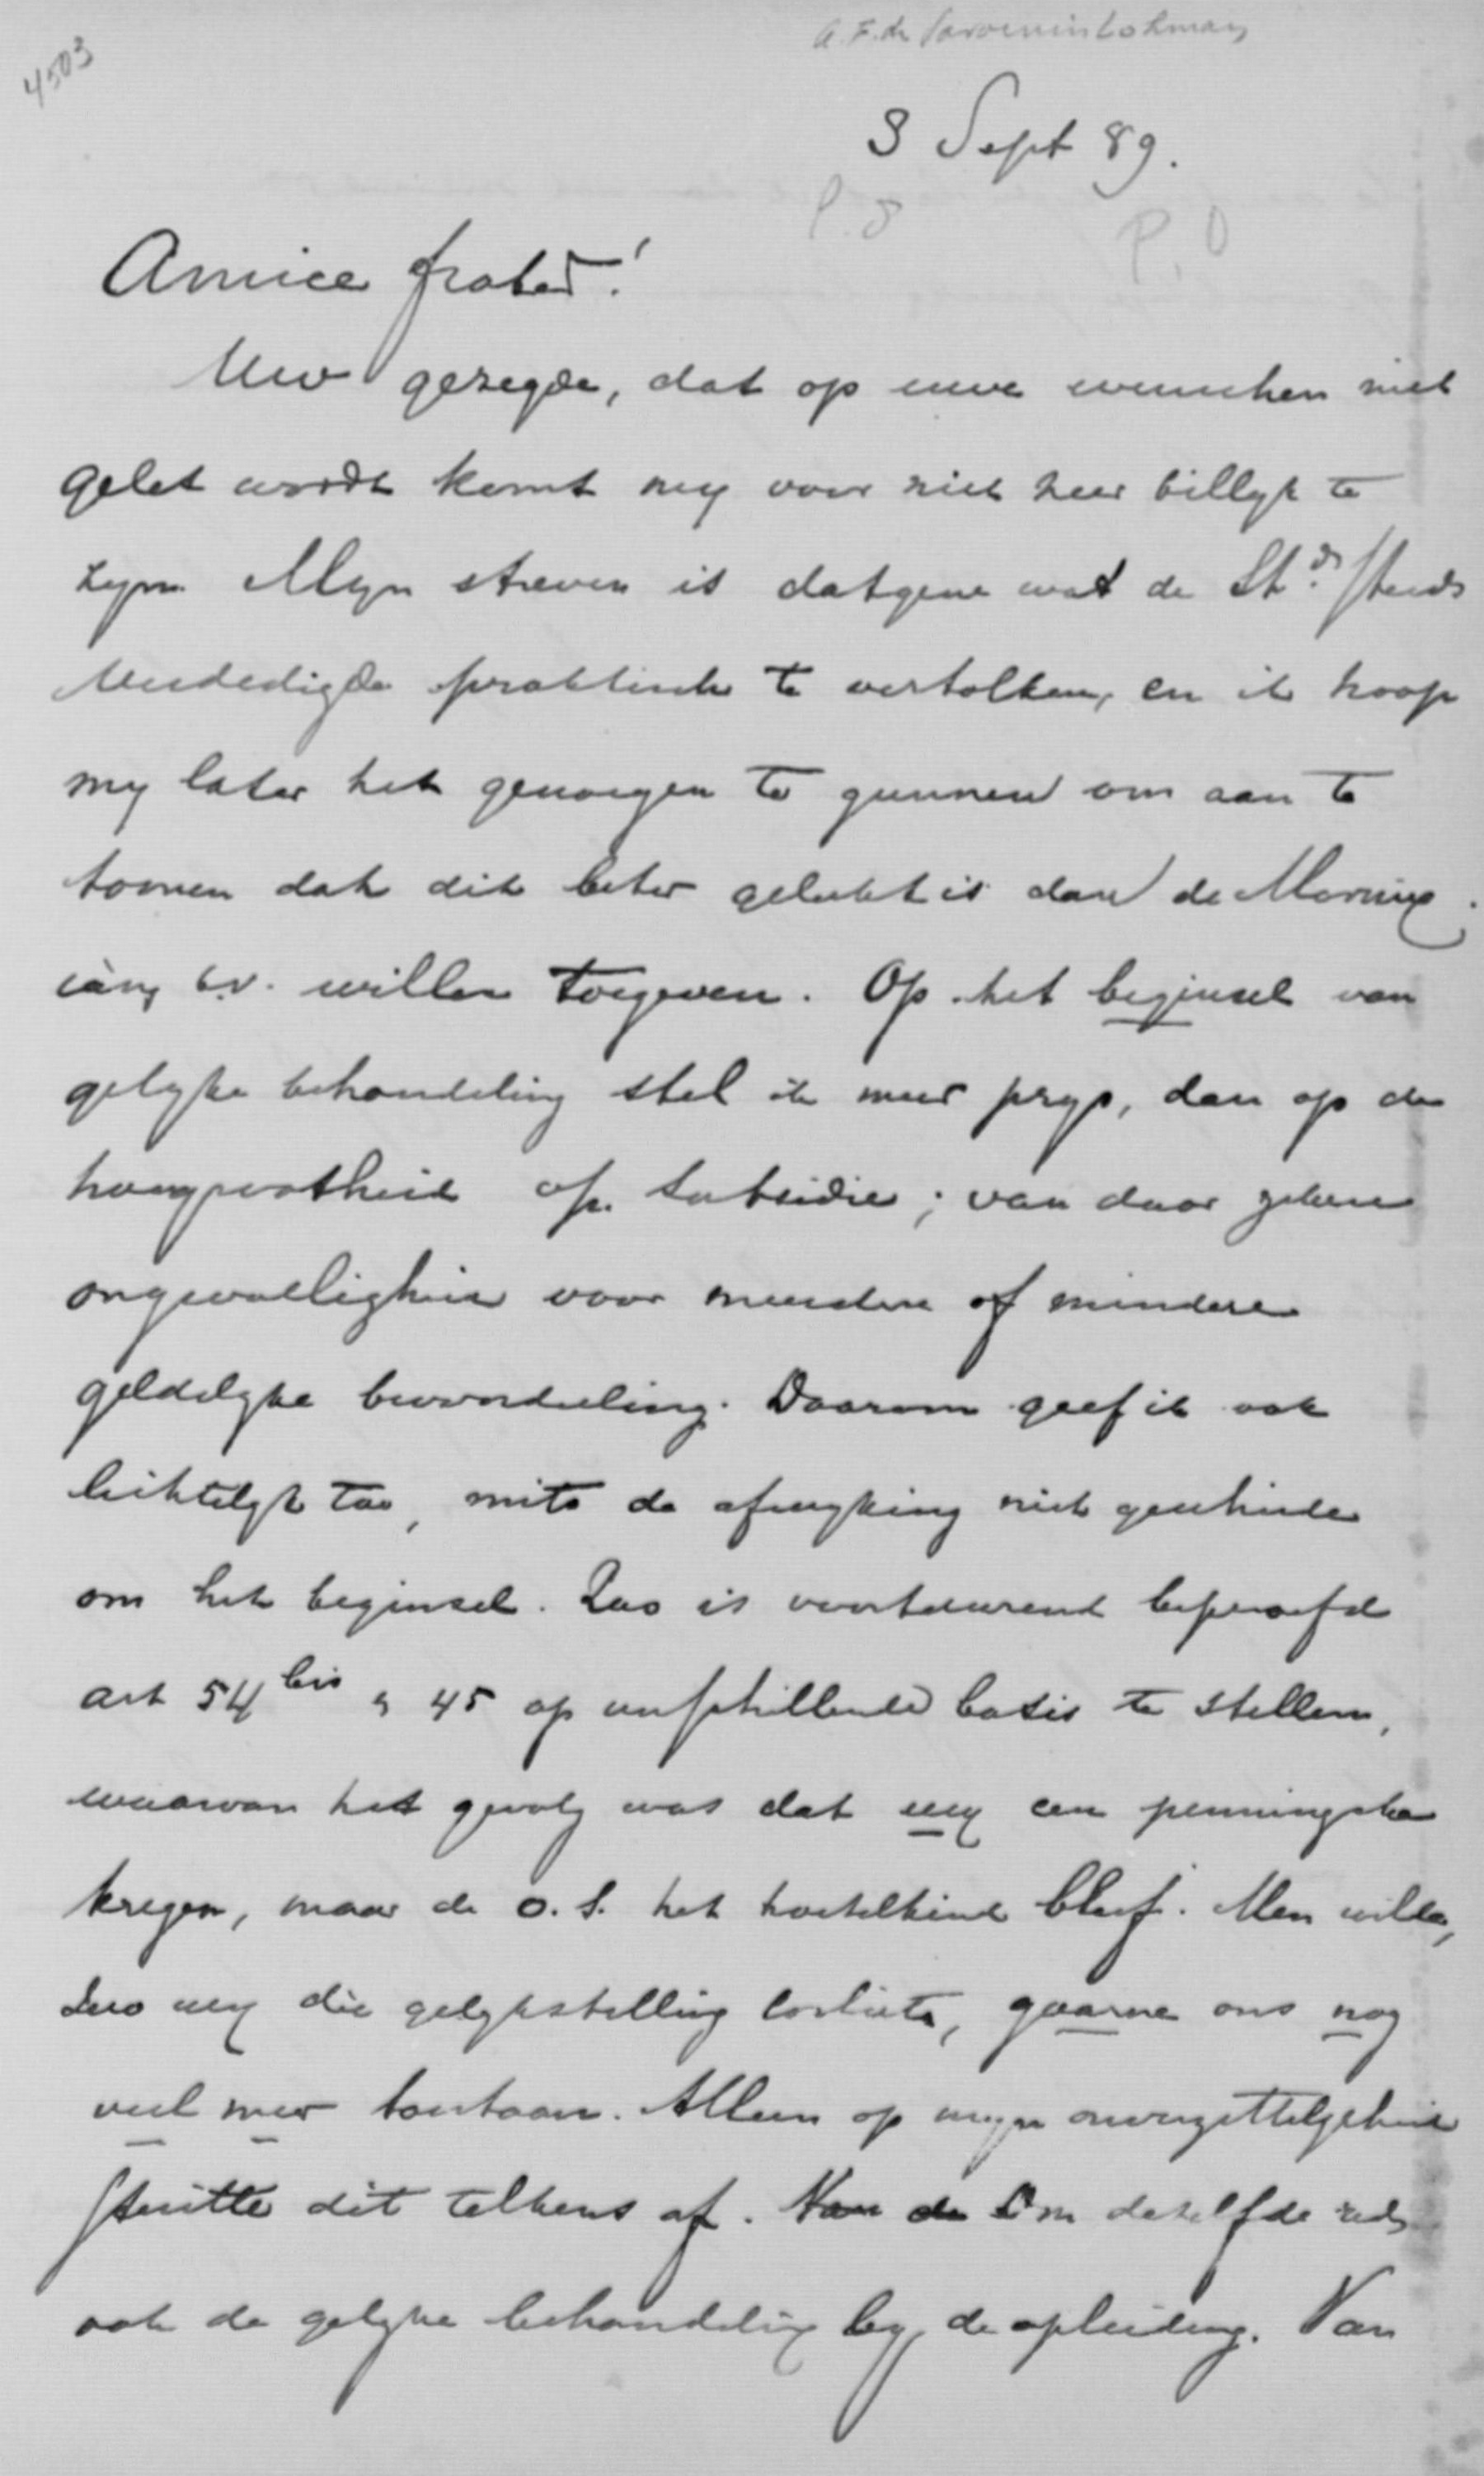 4503
A.F. de Savornin Lohman
3 Sept 89.
P. 8
P. 0
Amice frater!
Uw gezegde, dat op uwe wenschen niet
gelet wordt komt my voor niet zeer billyk te
zyn. Myn streven is datgene wat de St.d steeds
verdedigde praktisch te vertolken, en ik hoop
my later het genoegen te gunnen om aan te
toonen dat dit beter gelukt is dan de Marnix
b.v. willen toegeven. Op het beginsel van
gelyke behandeling stel ik meer prys, dan op de
hoegrootheid op subsidie; van daar zekere
ongevoeligheid voor meerdere of mindere
geldelyke bevoordeeling. Daarom geef ik ook
lichtelyk toe, mits de afwyking niet geschiede
om het beginsel. Zoo is voortdurend beproefd
art 54 bis & 45 op verschillende basis te stellen,
waarvan het gevolg was dat wy een penningske
kregen, maar de o.S. het troetelkind bleef. Men wilde,
zoo wy die gelykstelling loslieten, gaarne ons nog
veel meer toestaan. Alleen op myn onverzettelykheid
stuitte dit telkens af. Om dezelfde red
ook de gelyke behandeling by de opleiding. Van